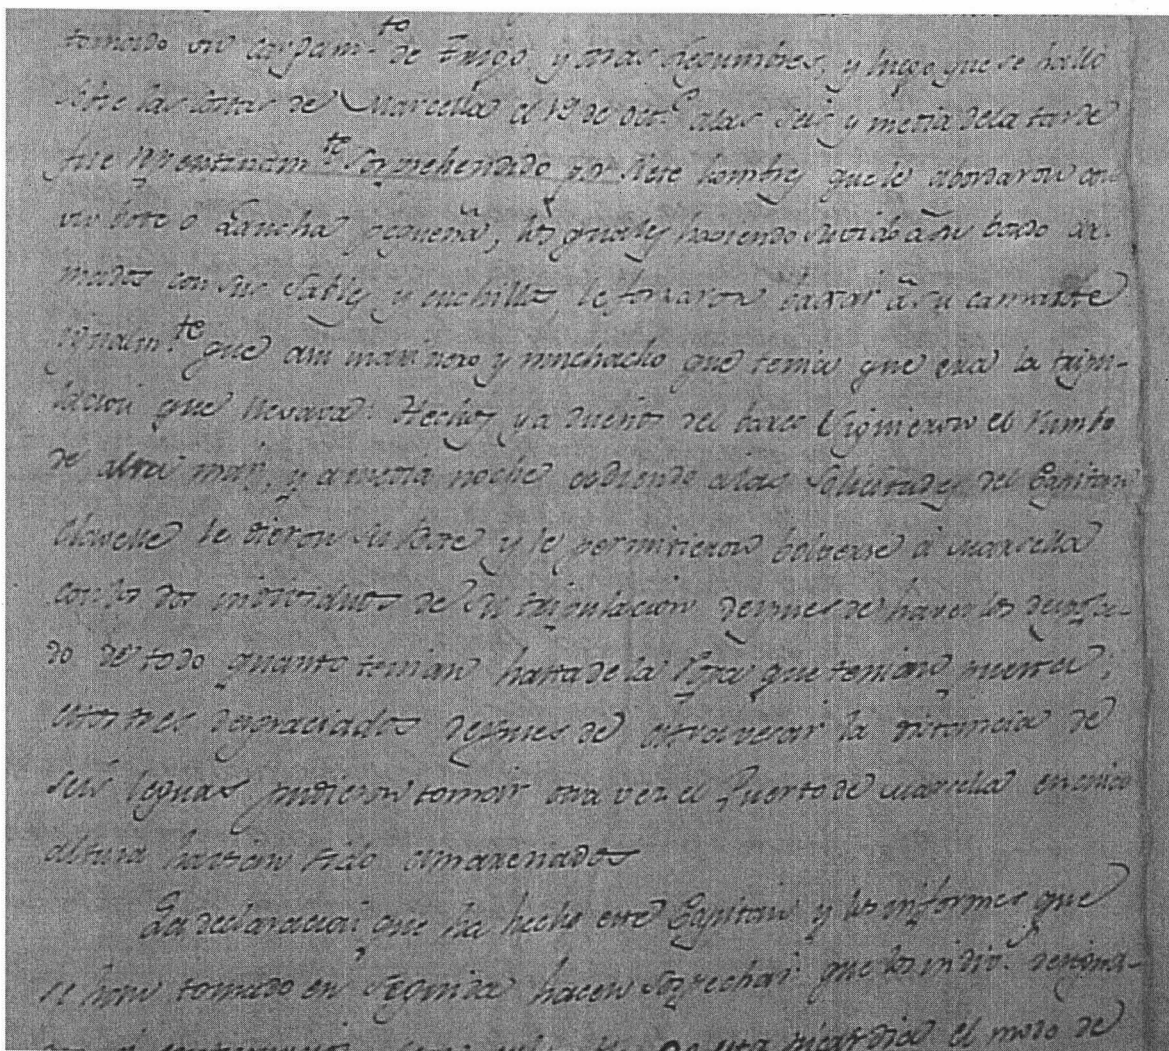 tomado un cargam.to de Trigo y otras legumbres, y luego que se halló
sobre las costas de Marcella el 19 de oct.e alas seis y media dela tarde
fue repentinam.te sorprehendido por siete hombres que le abordaron con
un bote o Lancha pequeña, los quales haviendo subido a su bordo ar-
mados con sus sables y cuchillos, le forzaron baxar a su camarote
igualm.te que a un marinero y muchacho que tenia que era la tripu-
lacion que llevava. Hechos ya dueños del barco siguieron el rumbo
de alta mar, y a media noche cediendo alas solicitudes del Capitan
le dieron su bote y le permitieron bolverse a Marsella
con los dos individuos de su tripulacion despues de haverlos despoja-
do de todo quanto tenian hasta de la Ropa que tenian puesta;
estos tres desgraciados despues de atravesar la distancia de
seis leguas pudieron tomar otra vez el Puerto de Marcella en cuia
altura havian sido
La declaracion que ha hecho este Capitan y los informes que
se han tomado en seguida hacen sospechar que los indiv.s
el modo de